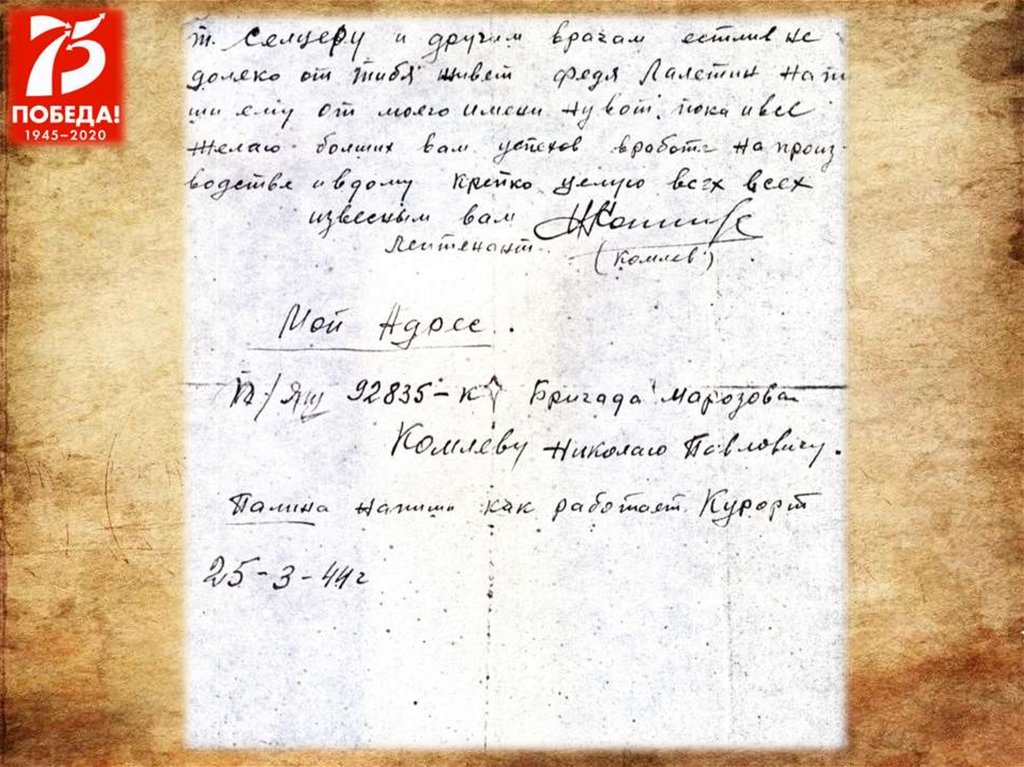 75
ПОБЕДА!
1945–2020
т. Селцеру и другим врачам естлив не
долеко от тибя живет Федя Лалетин напи
ши ему от моего имени ну вот пока и все
желаю болших вам успехов вработе на произ-
водстве ивдому крепко целую всех всех
извесным вам
Лейтенант
(Комлев)
Мой Адрес.
П/Ящ 92835-к Бригада Марозова
Комлеву Николаю Павловичу.
Палина напиши как работает Курорт
25-3-44г